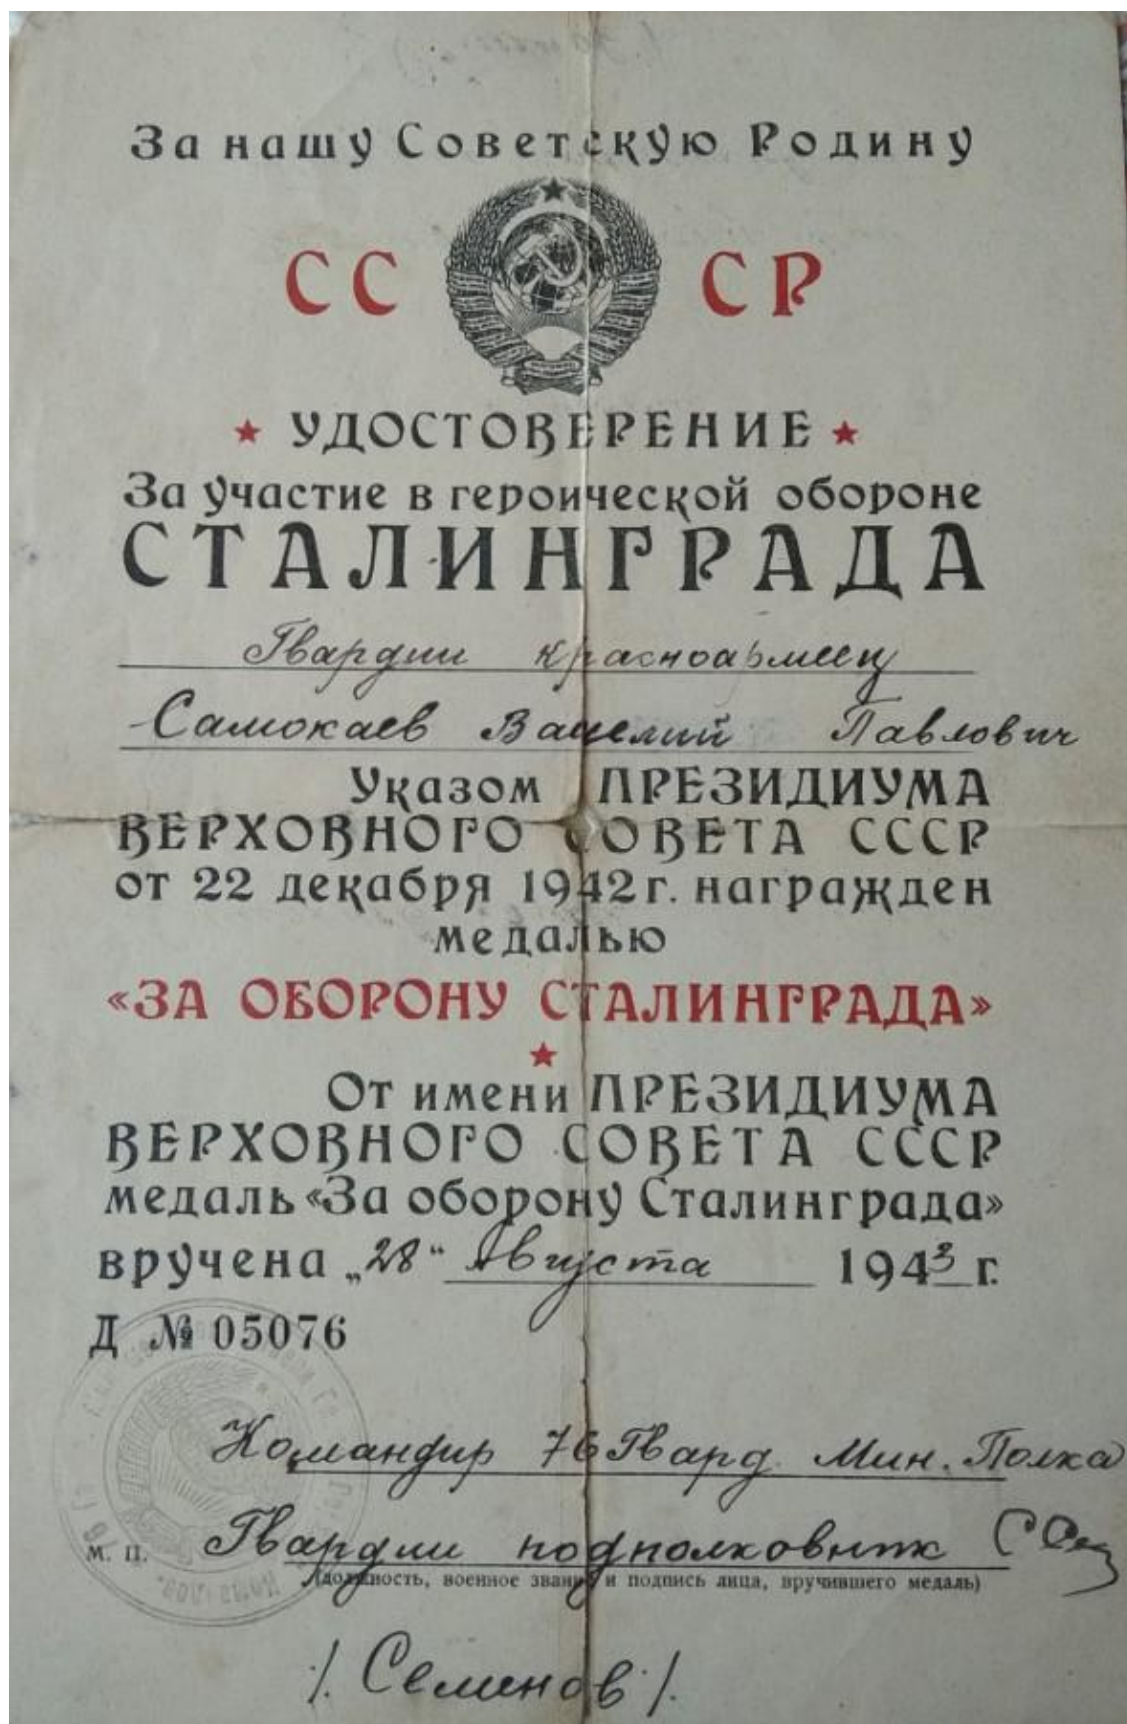 За нашу Советскую Родину
СС СР
УДОСТОВЕРЕНИЕ
За участие в героической обороне
СТАЛИНГРАДА
Гвардии красноармеец
Самокаев Василий Павлович
Указом ПРЕЗИДИУМА
ВЕРХОВНОГО СОВЕТА СССР
от 22 декабря 1942 г. награжден
медалью
«ЗА ОБОРОНУ СТАЛИНГРАДА»
От имени ПРЕЗИДИУМА
ВЕРХОВНОГО СОВЕТА СССР
медаль «За оборону Сталинграда»
вручена „28“ Августа 1943 г.
Д № 05076
Командир 76 Гвард. Мин. Полка
М. П. Гвардии подполковник
(должность, военное звание и подпись лица, вручившего медаль)
/. Семенов /.